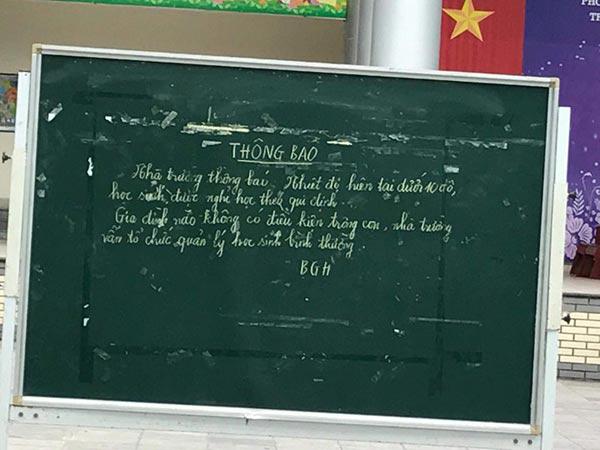 PHO
TR
THÔNG BAO
Nhà trường thông báo. Nhiệt độ hiện tại dưới 10 độ,
học sinh được nghỉ học theo qui định.
Gia đình nào không có điều kiện trông con, nhà trường
vẫn tổ chức quản lý học sinh bình thường.
BGH